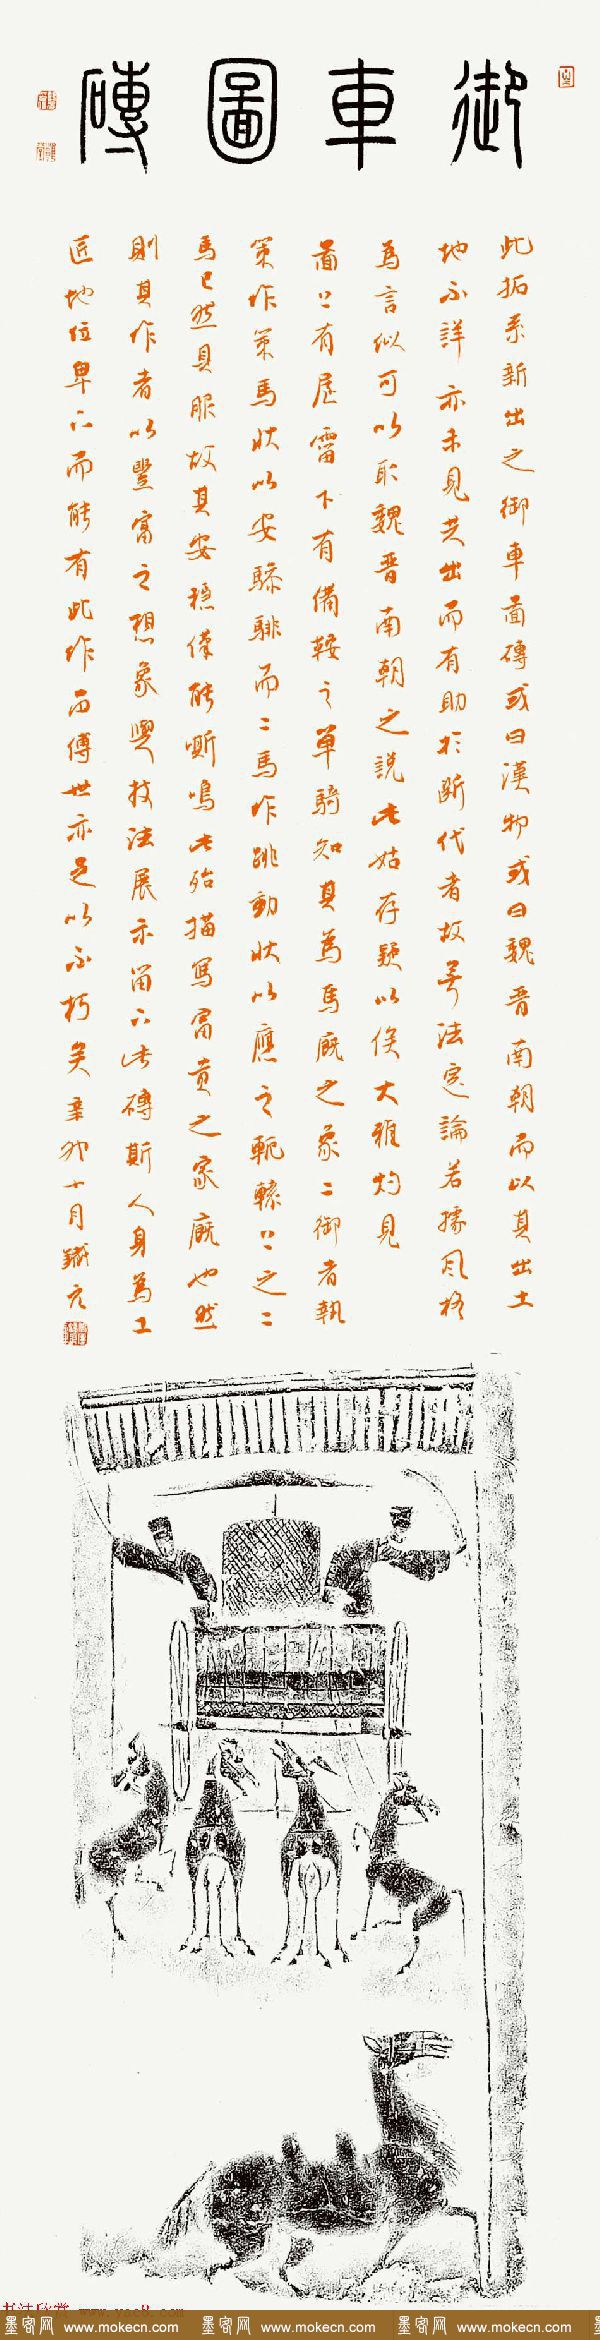 御車圖磚
此拓系新出之御車圖磚或曰漢物或曰魏晋南朝而以其出土
地不詳亦未見其出而有助於斷代者故無法定論若據風格
為言似可以取魏晋南朝之説此姑存疑以俟大雅灼見
圖上有屋霤下有備鞍之單騎知其為馬廐之象二御者執
策作策馬狀以安騑而二馬作跳動狀以應之軛轅上之二
馬已然具服故其安穩僅能嘶鳴此殆描寫富貴之家廐也然
則其作者以豐富之想象與技法展示留下此磚斯人身為工
匠地位卑下而能有此作而傳世亦足以不朽矣辛卯十月鐵元
书法欣赏 www.yac8.com
墨客网 www.mokecn.com 墨客网 www.mokecn.com 墨客网 www.mokecn.com